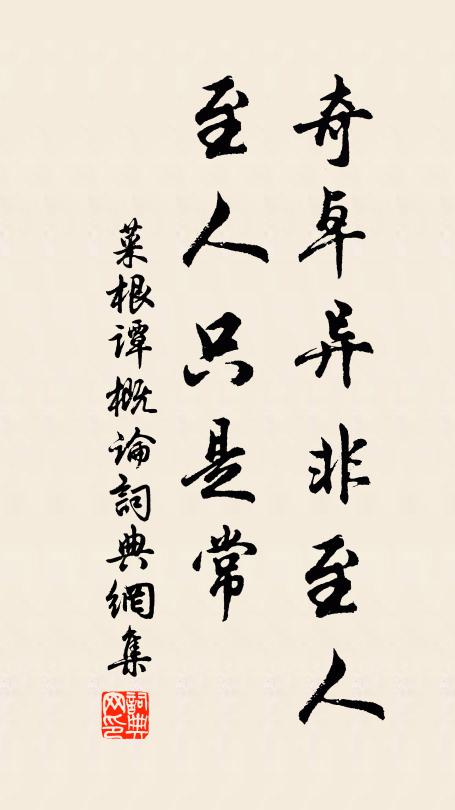 奇卓异非至人
至人只是常
菜根谭概论詞典網集
詞典网印